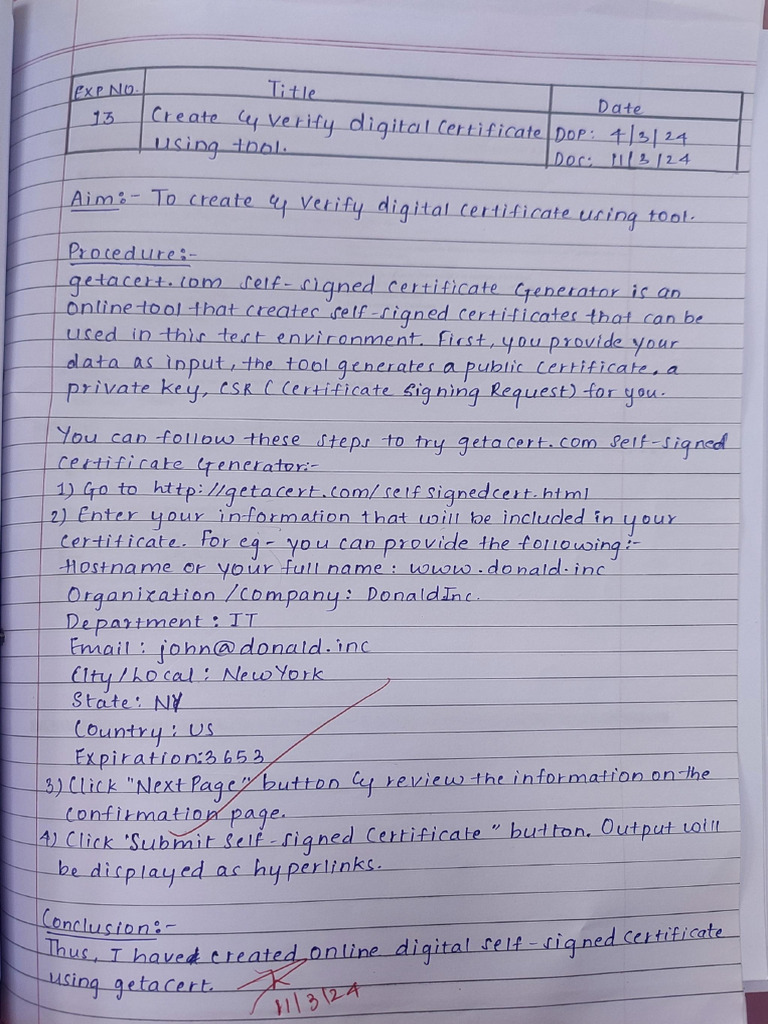 Exp No. Title Date
13 Create & verify digital certificate using tool. DOP: 4/3/24
DOC: 11/3/24
Aim:- To create & verify digital certificate using tool.
Procedure:-
getacert.com self-signed certificate Generator is an
online tool that creates self-signed certificates that can be
used in this test environment. First, you provide your
data as input, the tool generates a public certificate, a
private key, CSR (Certificate Signing Request) for you.
You can follow these steps to try getacert.com self-signed
certificate Generator:-
1) Go to http://getacert.com/selfsignedcert.html
2) Enter your information that will be included in your
certificate. For eg- you can provide the following:-
Hostname or your full name: www.donald.inc
Organization/Company: Donald Inc.
Department: IT
Email: john@donald.inc
City/Local: New York
State: NY
Country: US
Expiration:3653
3) Click "Next Page" button & review the information on the
confirmation page.
4) Click 'Submit Self-signed Certificate" button. Output will
be displayed as hyperlinks.
Conclusion:-
Thus, I have created online digital self-signed certificate
using getacert.
11/3/24